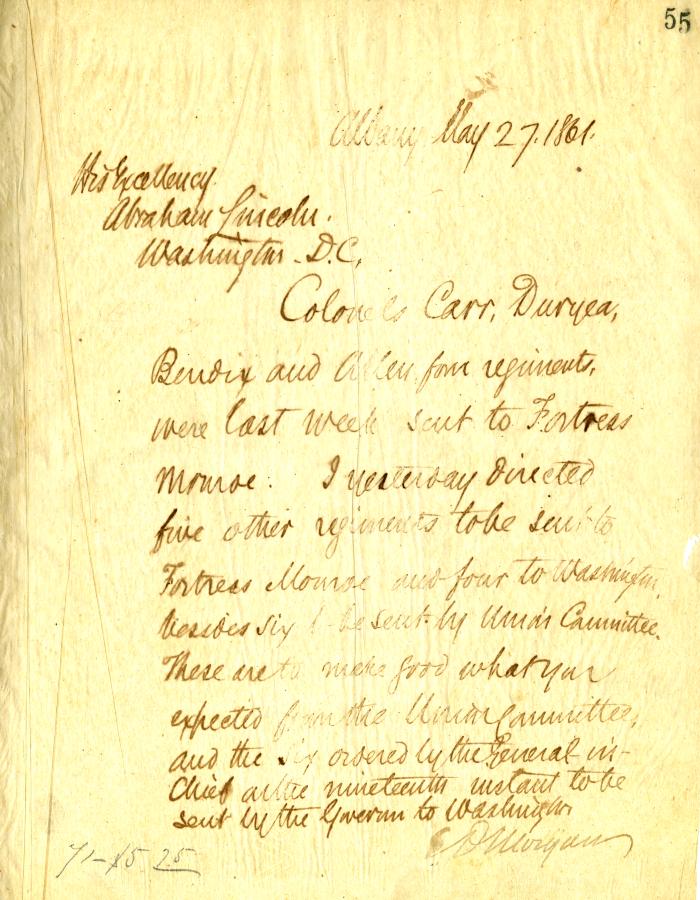 55
Albany May 27. 1861.
His Excellency
Abraham Lincoln.
Washington. D.C.
Colonels Carr, Duryea,
Bendix and Allen, four regiments,
were last week sent to Fortress
Monroe. I yesterday directed
five other regiments to be sent to
Fortress Monroe and four to Washington,
besides six to be sent by Union Committee.
These are to make good what you
expected from the Union Committee,
and the six ordered by the General-in-
Chief on the nineteenth instant to be
sent by the Governor to Washington.
E D Morgan
71-$5.25